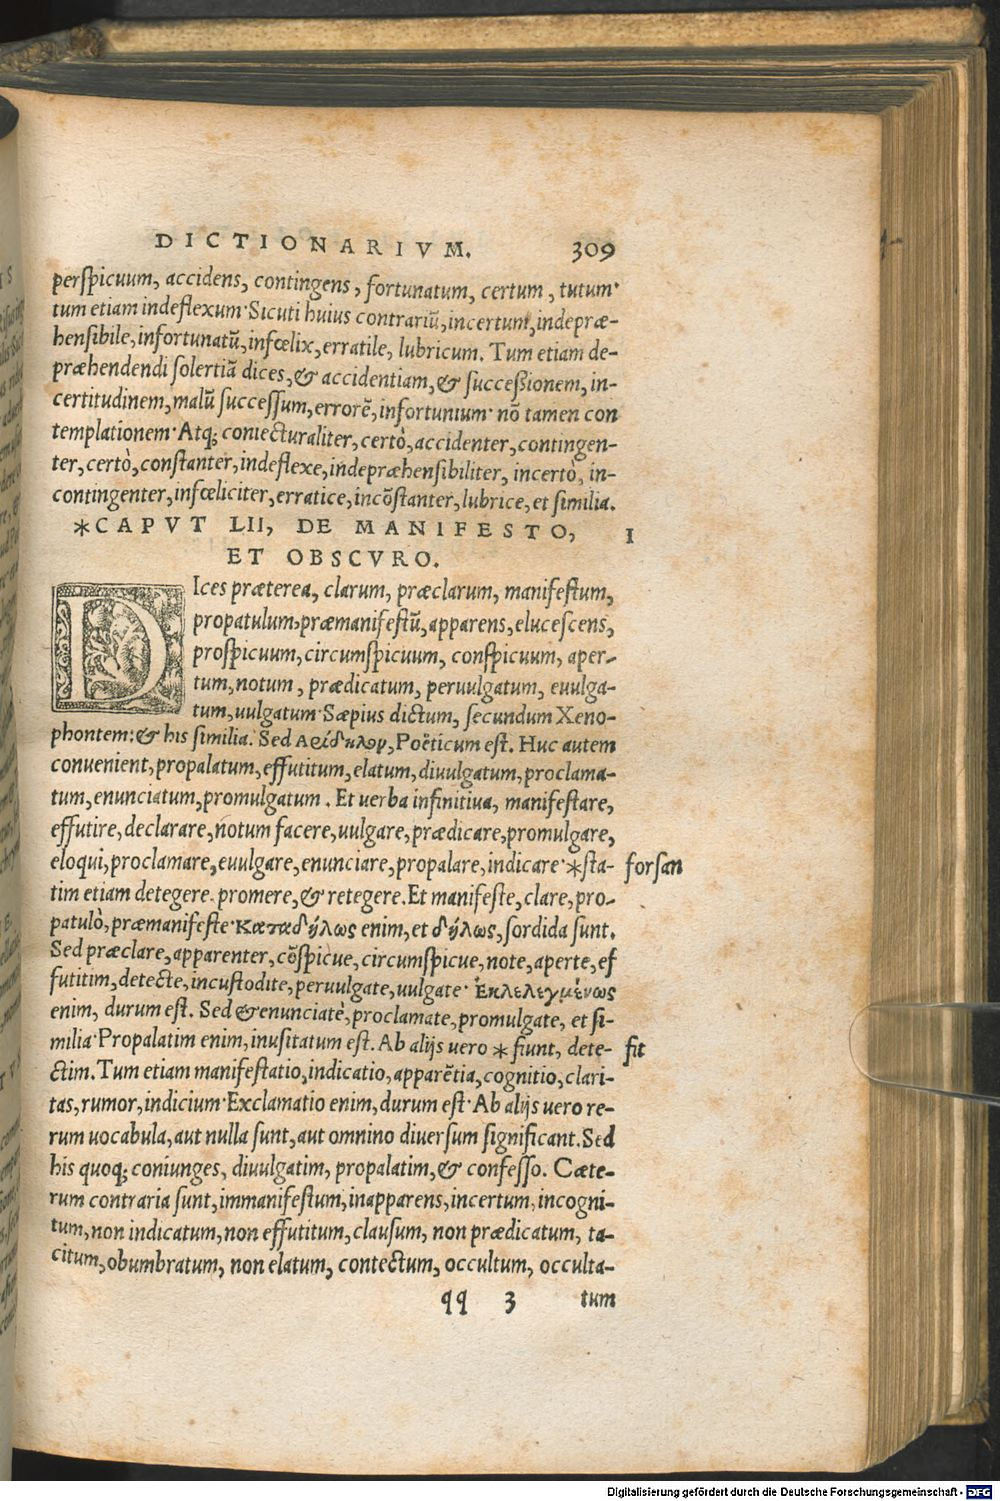 DICTIONARIVM. 309
perſpicuum, accidens, contingens, fortunatum, certum, tutum·
tum etiam indeflexum·Sicuti huius contrariũ, incertum, indepræ-
henſibile, infortunatũ, infœlix, erratile, lubricum. Tum etiam de-
præhendendi ſolertiã dices, & accidentiam, & ſucceßionem, in-
certitudinem, malũ ſucceſſum, errorẽ, infortunium· nõ tamen con
templationem·Atq; coniecturaliter, certò, accidenter, contingen-
ter, certò, conſtanter, indeflexe, indepræhenſibiliter, incertò, in-
contingenter, infœliciter, erratice, incõſtanter, lubrice, et ſimilia.
*CAPVT LII, DE MANIFESTO, I
ET OBSCVRO.
DIces præterea, clarum, præclarum, manifeſtum,
propatulum, præmanifeſtũ, apparens, eluceſcens,
proſpicuum, circumſpicuum, conſpicuum, aper-
tum, notum, prædicatum, peruulgatum, euulga-
tum, uulgatum·Sæpius dictum, ſecundum Xeno-
phontem: & his ſimilia. Sed ἀρίδηλον, Poëticum eſt. Huc autem
conuenient, propalatum, effutitum, elatum, diuulgatum, proclama-
tum, enunciatum, promulgatum. Et uerba infinitiua, manifeſtare,
effutire, declarare, notum facere, uulgare, prædicare, promulgare,
eloqui, proclamare, euulgare, enunciare, propalare, indicare·*ſta- forſan
tim etiam detegere. promere, & retegere. Et manifeſte, clare, pro-
patulò, præmanifeſte·Καταδήλως enim, et δήλως, ſordida ſunt.
Sed præclare, apparenter, cõſpicue, circumſpicue, note, aperte, ef
futitim, detecte, incuſtodite, peruulgate, uulgate· Ἐκλελεγμένως
enim, durum eſt. Sed & enunciatè, proclamate, promulgate, et ſi-
milia·Propalatim enim, inuſitatum eſt. Ab alijs uero * fiunt, dete- fit
ctim. Tum etiam manifeſtatio, indicatio, apparẽtia, cognitio, clari-
tas, rumor, indicium·Exclamatio enim, durum eſt·Ab alijs uero re-
rum uocabula, aut nulla ſunt, aut omnino diuerſum ſignificant. Sed
his quoq; coniunges, diuulgatim, propalatim, & confeſſo. Cæte-
rum contraria ſunt, immanifeſtum, inapparens, incertum, incogni-
tum, non indicatum, non effutitum, clauſum, non prædicatum, ta-
citum, obumbratum, non elatum, contectum, occultum, occulta-
qq 3 tum
Digitalisierung gefördert durch die Deutsche Forschungsgemeinschaft - DFG